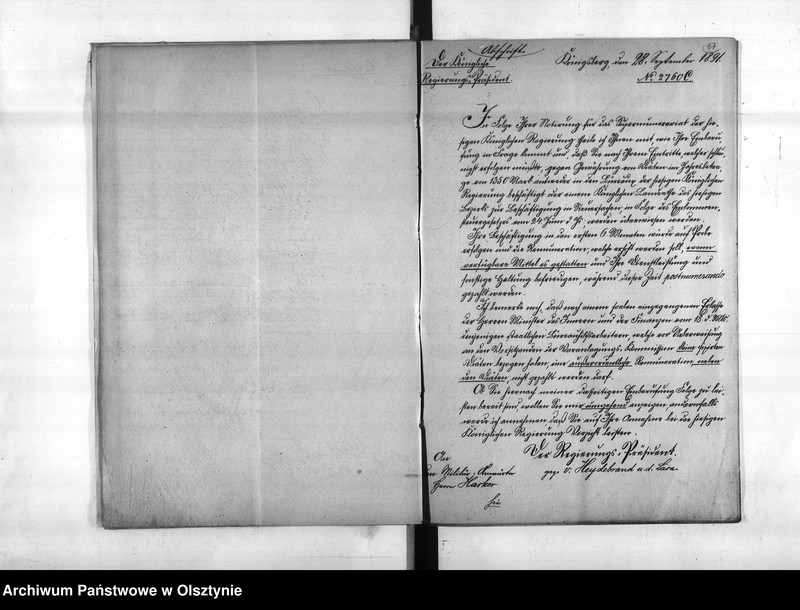 Abschrift.
Der Königliche
Regierungs-Präsident.
Königsberg, den 28. September 1891
No 2760 C
In Folge Ihrer Notirung für das Supernumerariat der hie-
sigen Königlichen Regierung theile ich Ihnen mit, wie Ihre Einberu-
fung in Frage kommt und, daß Sie nach Ihrem Eintritte, welcher
erfolgen müßte, gegen Gewährung von Diäten im Jahresbetra-
ge von 1350 Mark entweder in den Bureaus der hiesigen Königlichen
Regierung beschäftigt oder einem Königlichen Landrathe des hiesigen
Bezirks zur Beschäftigung in Steuersachen, in Folge des Einkommen-
steuergesetzes vom 24 Juni d. Js. werden überwiesen werden.
Ihre Beschäftigung in den ersten 6 Monaten würde auf Probe
erfolgen und die Remuneration, welche erhöht werden soll, wenn
verfügbare Mittel es gestatten und Ihre Dienstleistung und
sonstige Haltung befriedigen, während dieser Zeit postnumerando
gezahlt werden.
Ich bemerke noch, daß nach einem soeben eingegangenen Erlasse
der Herren Minister des Innern und der Finanzen vom 18. d. Mts.
denjenigen staatlichen Bureauhilfsarbeitern, welche vor Ueberweisung
an den Vorsitzenden der Veranlagungs-Kommission keine fixirten
Diäten bezogen haben, eine außerordentliche Remuneration, neben
den Diäten, nicht gezahlt werden darf.
Ob Sie hiernach meiner diesseitigen Einberufung Folge zu lei-
sten bereit sind, wollen Sie mir umgehend anzeigen, andernfalls
werde ich annehmen, daß Sie auf Ihre Annahme bei der hiesigen
Königlichen Regierung Verzicht leisten.
Der Regierungs-Präsident.
gez. v. Heydebrand u. d. Lasa
An
den Militär-Anwärter
Herrn Harker
hier
Archiwum Państwowe w Olsztynie